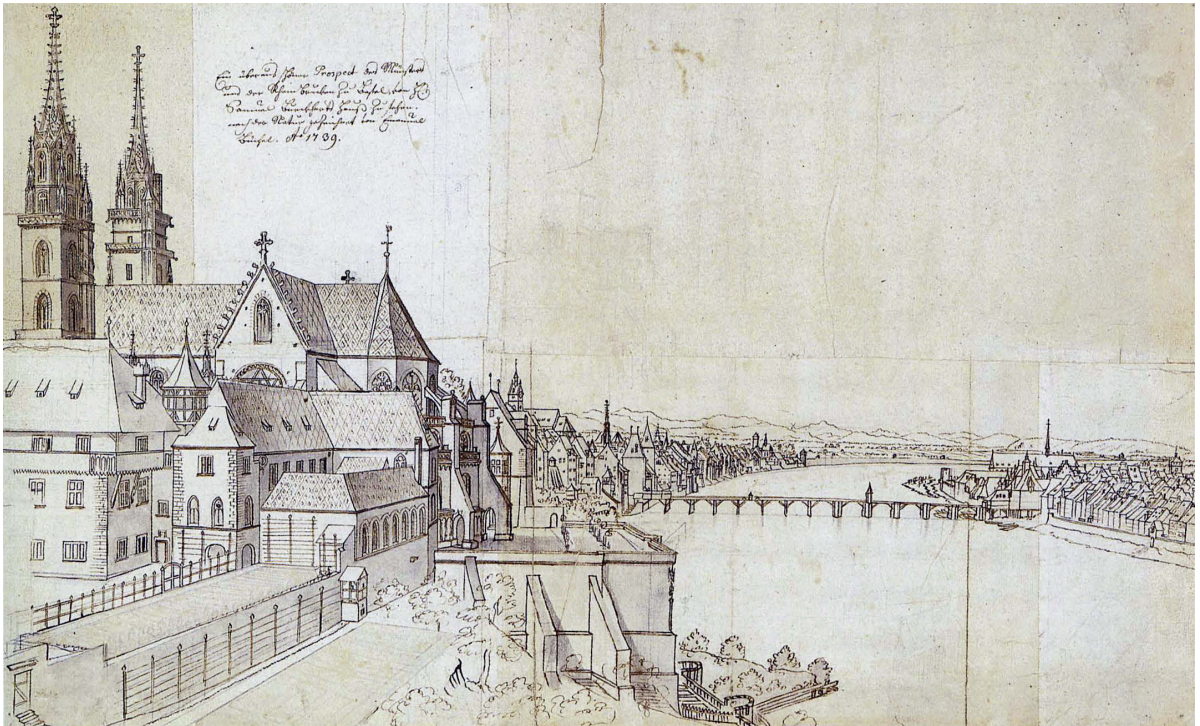 Ein überaus schöner Prospect des Münsters
und der Rhein brucken zu Basel, von Hr
Samuel Burckhardts Hauß zu sehen.
nach der Natur gezeichnet von Emanuel
Büchel. Aº 1739.